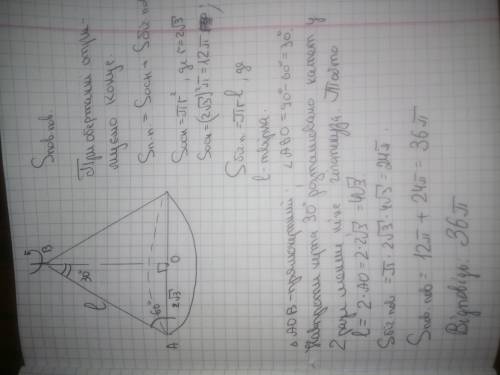 Sпов.пов.
При обертанні отри-
муємо конус.
Sп.п. = Sосн + Sбіч.пов
Sосн = πr², де r = 2√3
Sосн = (2√3)²π = 12π
Sбіч.п. = πrl, де
l - твірна.
B
30°
l
60°
2√3
A
O
△AOB - прямокутний. ∠ABO = 90° - 60° = 30°.
Навпроти кута 30° розташовано катет у
2 рази менший ніж гіпотенуза. Тобто
l = 2·AO = 2·2√3 = 4√3.
Sбіч.пов = π·2√3·4√3 = 24π.
Sпов.пов = 12π + 24π = 36π
Відповідь: 36π